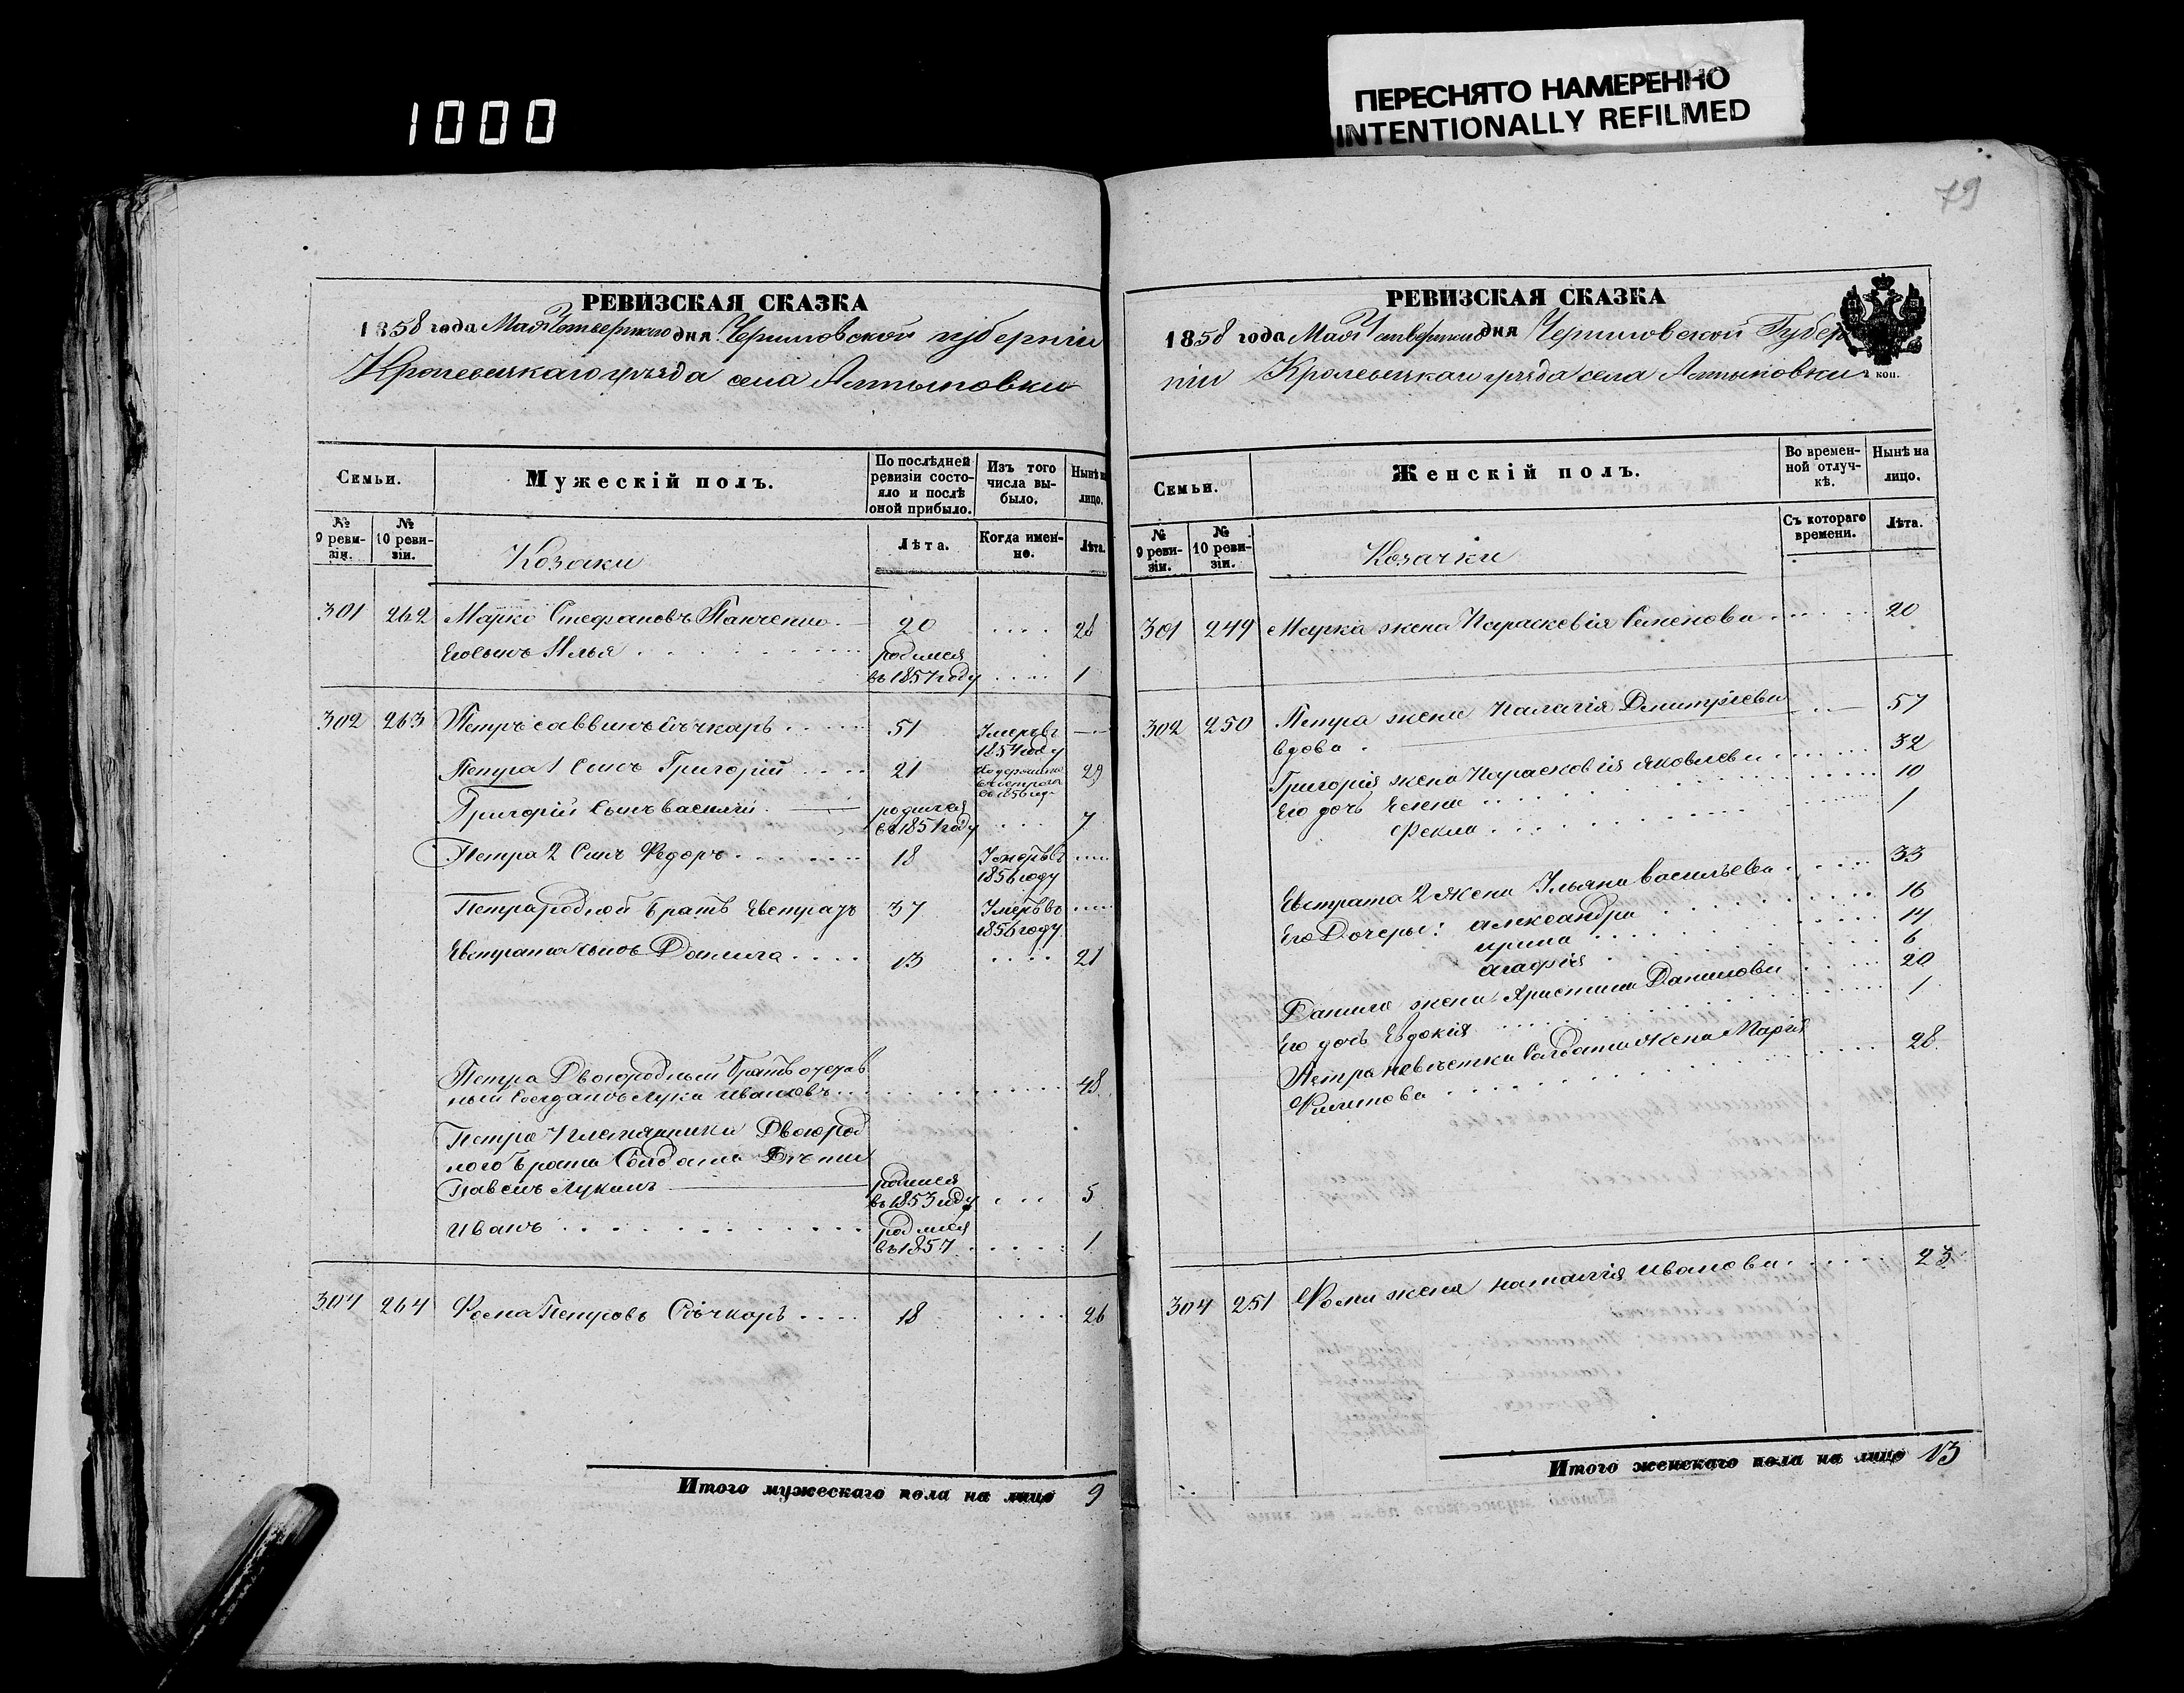 1000
ПЕРЕСНЯТО НАМЕРЕННО
INTENTIONALLY REFILMED
РЕВИЗСКАЯ СКАЗКА
1858 года Мая Четвертаго дня Черниговской губерніи
Кролевецкаго уѣзда села Алтыновки
Семьи.
Мужескій полъ.
По послѣдней ревизіи состояло и послѣ оной прибыло.
Изъ того числа выбыло.
Нынѣ на лицо.
№ 9 ревизіи.
№ 10 ревизіи.
Козаки
Лѣта.
Когда именно.
Лѣта.
301 262 Марко Стефановъ Панченко 20 .... 28
Его сынъ Илья родился
въ 1857 году .... 1
302 263 Петръ Саввинъ Сѣчкарь 51 Умеръ въ
1854 году
Петра 1 Сынъ Григорій 21 29
въ 1856 год
Григорій Сынъ Василій родился
въ 1851 году 7
Петра 2 Сынъ Федоръ 18 Умеръ въ
1856 году
Петра родной братъ Евстратъ 37 Умеръ въ
1856 году
Евстрата сынъ Данила 13 .... 21
Петра Двоюродный братъ отстав
ный Солдатъ Лука Ивановъ 48
Петра племянники Двоюрод
ного брата Солдата Дѣти
Павелъ Лукинъ родился
въ 1853 году 5
Иванъ родился
въ 1857 1
304 264 Фома Петровъ Сѣчкарь 18 .... 26
Итого мужескаго пола на лицо 9
79
РЕВИЗСКАЯ СКАЗКА
1858 года Мая Четвертаго дня Черниговской Губер
ніи Кролевецкаго уѣзда села Алтыновки
коп.
Семьи.
Женскій полъ.
Во временной отлучкѣ.
Нынѣ на лицо.
№ 9 ревизіи.
№ 10 ревизіи.
Козачки
Съ котораго времени.
Лѣта.
301 249 Марка жена Парасковія Семенова 20
302 250 Петра жена Палагія Дмитріева 57
вдова
Григорія жена Парасковія Яковлева 32
Его дочь Елена 10
Фекла 1
Евстрата 2 жена Ульяна Васильева 33
Его Дочеры: Александра 16
Ирина 14
Агафія 6
Данила жена Христина Данилова 20
Его дочь Евдокія 1
Петра невѣстка Солдата жена Марія
Филипова 28
304 251 Фомы жена Наталія Иванова 23
Итого женскаго пола на лицо 13